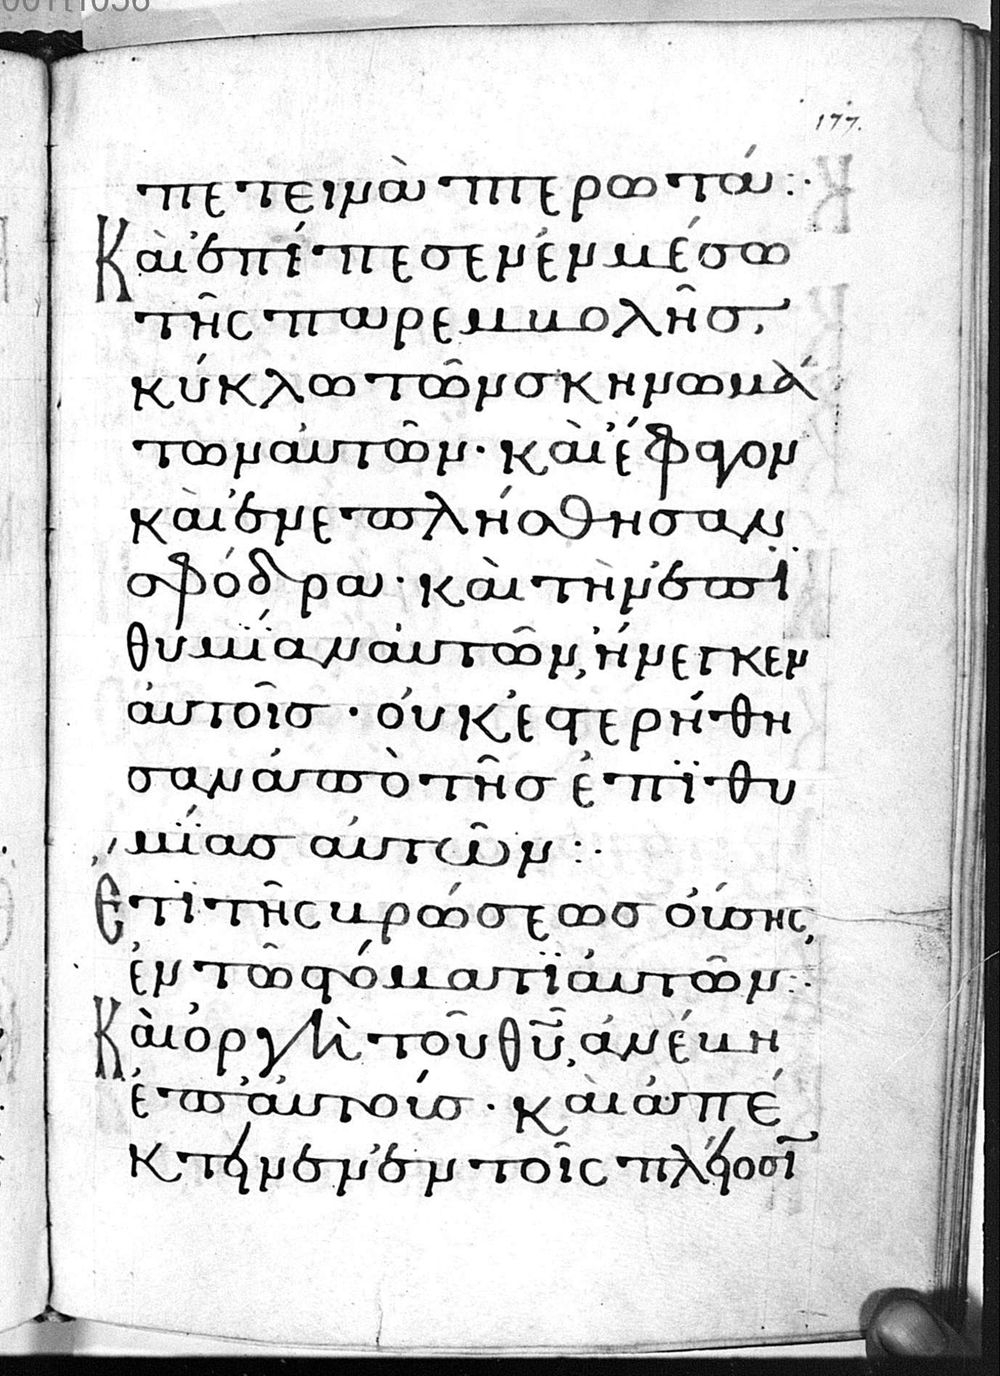 00111056
177.
πετεινὰ πτερωτά:·
Καὶ ἐπέπεσεν ἐν μέσω
τῆς παρεμβολῆσ,
κύκλω τῶν σκηνωμά
των αὐτῶν· καὶ ἔφαγον
καὶ ἐνεπλήσθησαν
σφόδρα· καὶ τὴν ἐπϊ
θυμΐαν αὐτῶν, ἤνεγκεν
αὐτοῖσ· οὐκ ἐστερήθη
σαν ἀπὸ τῆσ ἐπϊθυ
μΐασ αὐτῶν:·
Ετϊ τῆς βρώσεωσ οὔσης,
ἐν τῶ στόματϊ αὐτῶν:·
Καὶ ὀργὴ τοῦ θῦ, ἀνέβη
ἐπ' αὐτούσ· καὶ ἀπέ
κτεινεν ἐν τοῖς πλείοσῖ